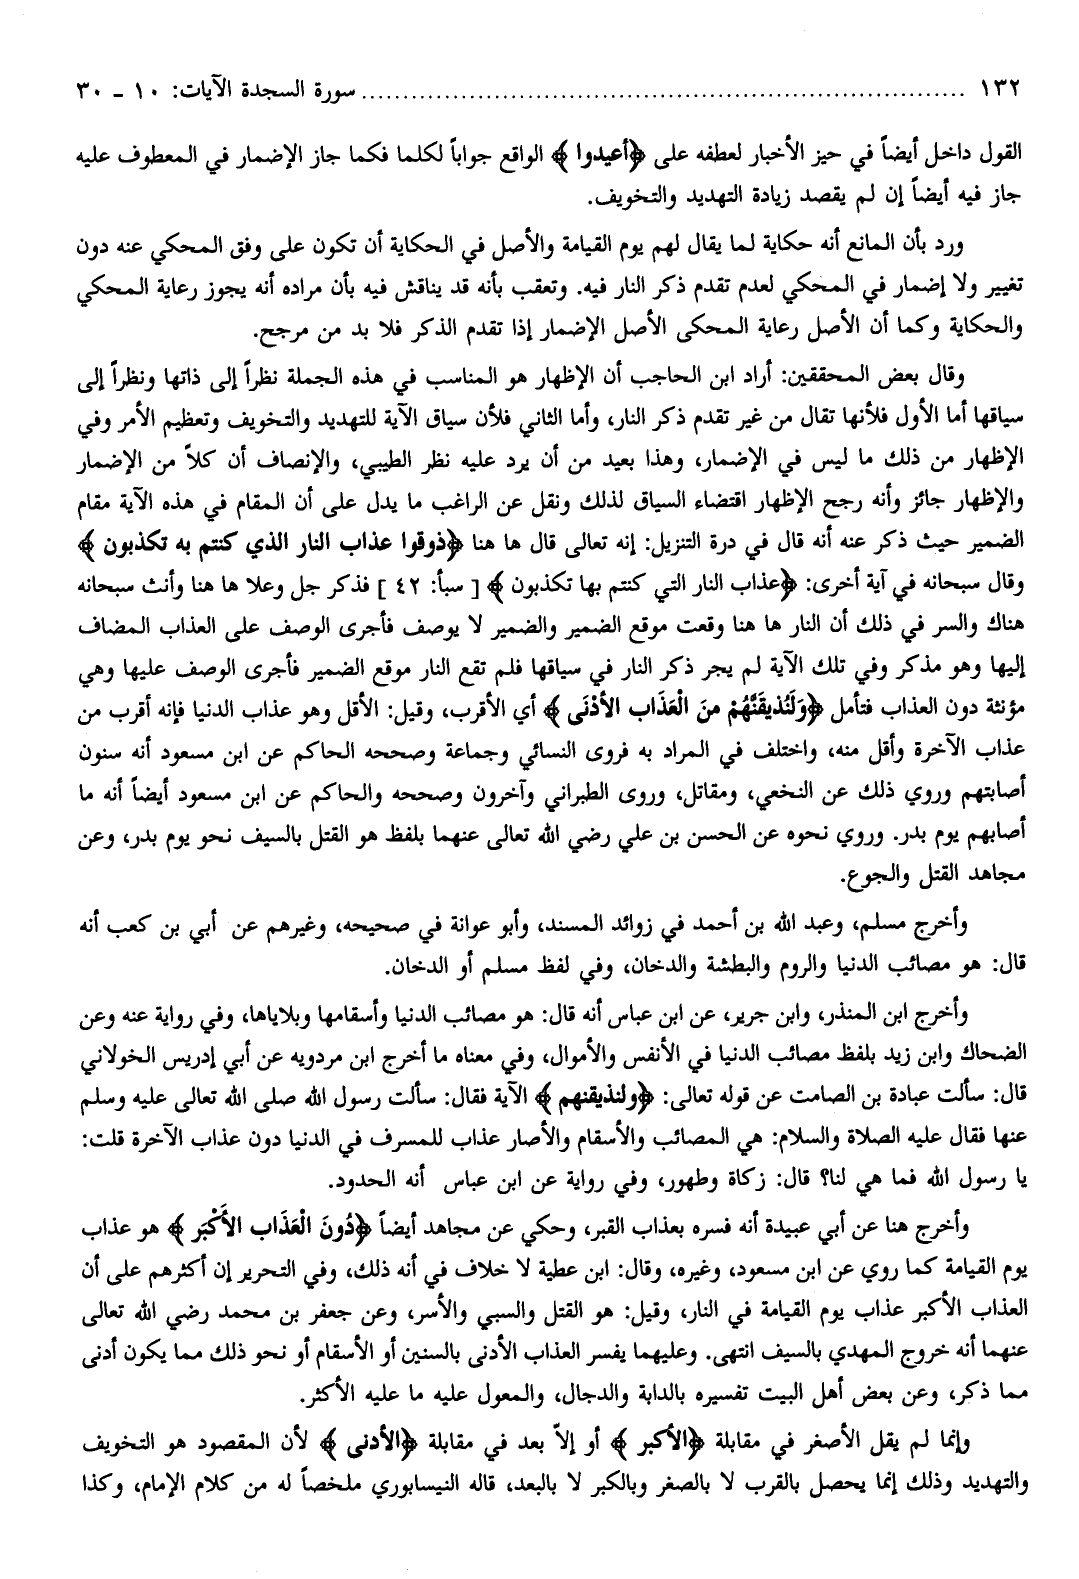 ١٣٢ ........................................................................ سورة السجدة الآيات: ١٠ ـ ٣٠
القول داخل أيضاً في حيز الأخبار لعطفه على ﴿أعيدوا﴾ الواقع جواباً لكلما فكما جاز الإضمار في المعطوف عليه
جاز فيه أيضاً إن لم يقصد زيادة التهديد والتخويف.
ورد بأن المانع أنه حكاية لما يقال لهم يوم القيامة والأصل في الحكاية أن تكون على وفق المحكي عنه دون
تغيير ولا إضمار في المحكي لعدم تقدم ذكر النار فيه. وتعقب بأنه قد يناقش فيه بأن مراده أنه يجوز رعاية المحكي
والحكاية وكما أن الأصل رعاية المحكى الأصل الإضمار إذا تقدم الذكر فلا بد من مرجح.
وقال بعض المحققين: أراد ابن الحاجب أن الإظهار هو المناسب في هذه الجملة نظراً إلى ذاتها ونظراً إلى
سياقها أما الأول فلأنها تقال من غير تقدم ذكر النار، وأما الثاني فلأن سياق الآية للتهديد والتخويف وتعظيم الأمر وفي
الإظهار من ذلك ما ليس في الإضمار، وهذا بعيد من أن يرد عليه نظر الطيبي، والإنصاف أن كلاً من الإضمار
والإظهار جائز وأنه رجح الإظهار اقتضاء السياق لذلك ونقل عن الراغب ما يدل على أن المقام في هذه الآية مقام
الضمير حيث ذكر عنه أنه قال في درة التنزيل: إنه تعالى قال ها هنا ﴿ذوقوا عذاب النار الذي كنتم به تكذبون﴾
وقال سبحانه في آية أخرى: ﴿عذاب النار التي كنتم بها تكذبون﴾ [ سبأ: ٤٢ ] فذكر جل وعلا ها هنا وأنث سبحانه
هناك والسر في ذلك أن النار ها هنا وقعت موقع الضمير والضمير لا يوصف فأجرى الوصف على العذاب المضاف
إليها وهو مذكر وفي تلك الآية لم يجر ذكر النار في سياقها فلم تقع النار موقع الضمير فأجرى الوصف عليها وهي
مؤنثة دون العذاب فتأمل ﴿وَلَنُذيقَنَّهُمْ منَ الْعَذَاب الأدْنَى﴾ أي الأقرب، وقيل: الأقل وهو عذاب الدنيا فإنه أقرب من
عذاب الآخرة وأقل منه، واختلف في المراد به فروى النسائي وجماعة وصححه الحاكم عن ابن مسعود أنه سنون
أصابتهم وروي ذلك عن النخعي، ومقاتل، وروى الطبراني وآخرون وصححه والحاكم عن ابن مسعود أيضاً أنه ما
أصابهم يوم بدر. وروي نحوه عن الحسن بن علي رضي الله تعالى عنهما بلفظ هو القتل بالسيف نحو يوم بدر، وعن
مجاهد القتل والجوع.
وأخرج مسلم، وعبد الله بن أحمد في زوائد المسند، وأبو عوانة في صحيحه، وغيرهم عن أبي بن كعب أنه
قال: هو مصائب الدنيا والروم والبطشة والدخان، وفي لفظ مسلم أو الدخان.
وأخرج ابن المنذر، وابن جرير، عن ابن عباس أنه قال: هو مصائب الدنيا وأسقامها وبلاياها، وفي رواية عنه وعن
الضحاك وابن زيد بلفظ مصائب الدنيا في الأنفس والأموال، وفي معناه ما أخرج ابن مردويه عن أبي إدريس الخولاني
قال: سألت عبادة بن الصامت عن قوله تعالى: ﴿ولنذيقنهم﴾ الآية فقال: سألت رسول الله صلى الله تعالى عليه وسلم
عنها فقال عليه الصلاة والسلام: هي المصائب والأسقام والأصار عذاب للمسرف في الدنيا دون عذاب الآخرة قلت:
يا رسول الله فما هي لنا؟ قال: زكاة وطهور، وفي رواية عن ابن عباس أنه الحدود.
وأخرج هنا عن أبي عبيدة أنه فسره بعذاب القبر، وحكي عن مجاهد أيضاً ﴿دُونَ الْعَذَاب الأَكْبَر﴾ هو عذاب
يوم القيامة كما روي عن ابن مسعود، وغيره، وقال: ابن عطية لا خلاف في أنه ذلك، وفي التحرير إن أكثرهم على أن
العذاب الأكبر عذاب يوم القيامة في النار، وقيل: هو القتل والسبي والأسر، وعن جعفر بن محمد رضي الله تعالى
عنهما أنه خروج المهدي بالسيف انتهى. وعليهما يفسر العذاب الأدنى بالسنين أو الأسقام أو نحو ذلك مما يكون أدنى
مما ذكر، وعن بعض أهل البيت تفسيره بالدابة والدجال، والمعول عليه ما عليه الأكثر.
وإنما لم يقل الأصغر في مقابلة ﴿الأكبر﴾ أو إلاّ بعد في مقابلة ﴿الأدنى﴾ لأن المقصود هو التخويف
والتهديد وذلك إنما يحصل بالقرب لا بالصغر وبالكبر لا بالبعد، قاله النيسابوري ملخصاً له من كلام الإمام، وكذا